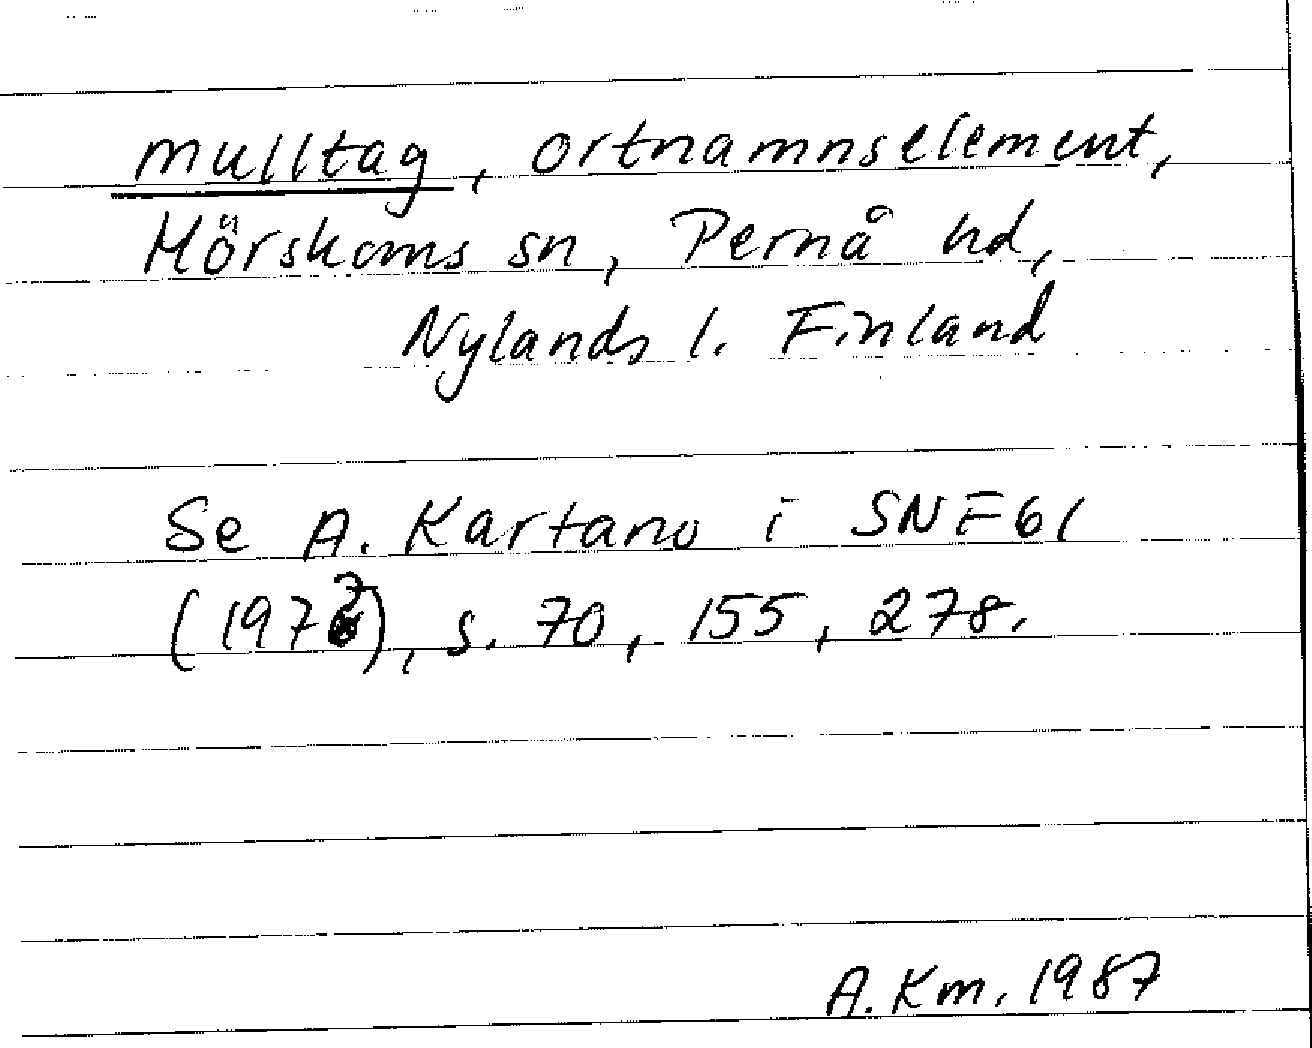 mulltag, ortnamnselement,
Mörskoms sn, Pernå hd,
Nylands l. Finland
Se A. Kartano i SNF 61
(1973), s. 70, 155, 278.
A. Km. 1987